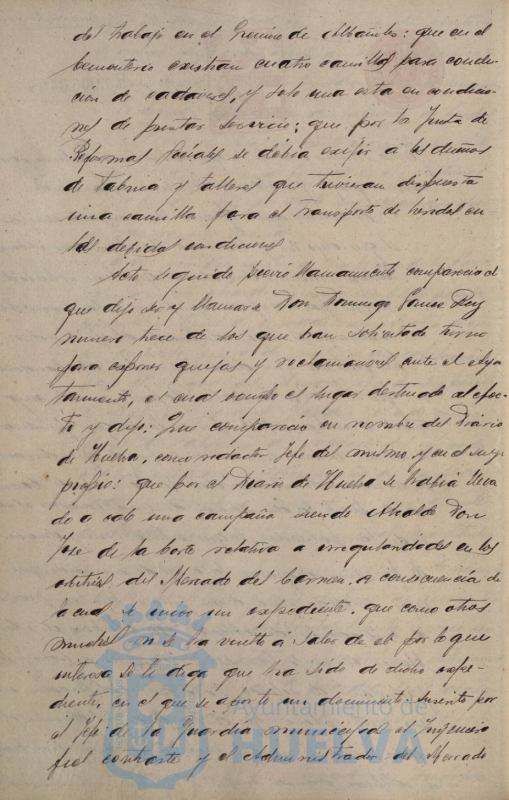 del trabajo en el Gremio de Albañiles: que en el
Cementerio existian cuatro camillas para conduc-
ción de cadáveres, y solo una esta en condicio-
nes de prestar servicio; que por la Junta de
Reformas Sociales se debia exijir á los dueños
de fabrica y talleres que tuvieran dispuesta
una camilla para el transporte de heridos en
las debidas condiciones
Acto seguido previo llamamiento comparecio el
que dijo ser y llamarse Don Domingo
numero trece de los que han solicitado turno
para exponer quejas y reclamaciones ante el Ayun-
tamiento, el cual ocupó el lugar destinado al efec-
to y dijo: Que comparecia en nombre del Diario
de Huelva, como redactor Jefe del mismo y en el suyo
propio: que por el Diario de Huelva se habia lleva-
do a cabo una campaña siendo Alcalde Don
José de la Corte relativa a irregularidades en los
arbitrios del Mercado del Carmen, a consecuencia de
la cual se inició un expediente, que como otros
muchos no se ha vuelto á saber de él por lo que
interesa se le diga que ha sido de dicho expe-
diente, en el que se aporte un documento suscrito por
el Jefe de la Guardia municipal el Ingeniero
fiel contraste y el Administrador del Mercado
Ayuntamiento de
HUELVA